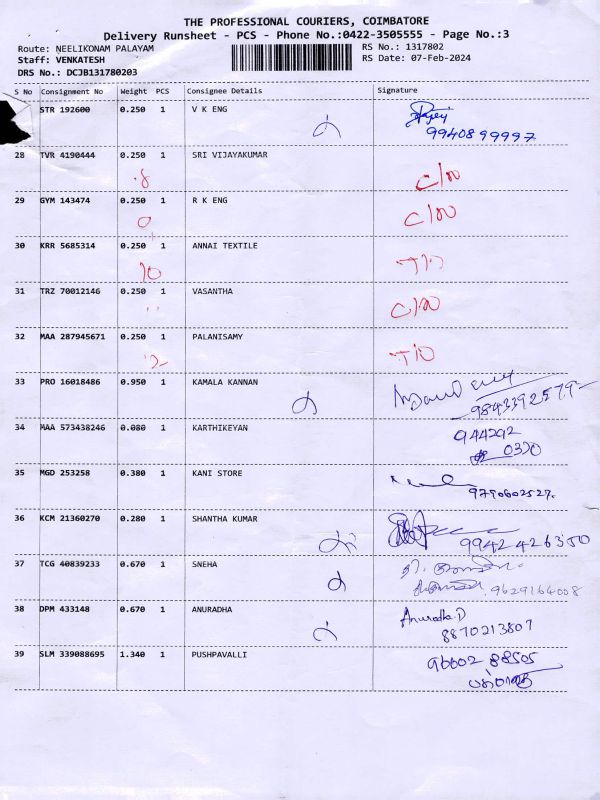 THE PROFESSIONAL COURIERS, COIMBATORE
Delivery Runsheet - PCS - Phone No.:0422-3505555 - Page No.:3
Route: NEELIKONAM PALAYAM RS No.: 1317802
Staff: VENKATESH RS Date: 07-Feb-2024
DRS No.: DCJB131780203
S No Consignment No Weight PCS Consignee Details Signature
STR 192600 0.250 1 V K ENG
9940899997
28 TVR 4190444 0.250 1 SRI VIJAYAKUMAR
29 GYM 143474 0.250 1 R K ENG
30 KRR 5685314 0.250 1 ANNAI TEXTILE
10
31 TRZ 70012146 0.250 1 VASANTHA
32 MAA 287945671 0.250 1 PALANISAMY
33 PRO 16018486 0.950 1 KAMALA KANNAN
9843392579
34 MAA 573438246 0.080 1 KARTHIKEYAN 944292
0320
35 MGD 253258 0.380 1 KANI STORE
9790602527.
36 KCM 21360270 0.280 1 SHANTHA KUMAR
9942426350
37 TCG 40839233 0.670 1 SNEHA
9629164008
38 DPM 433148 0.670 1 ANURADHA Anuradha.D
8870213807
39 SLM 339088695 1.340 1 PUSHPAVALLI 96602 88505